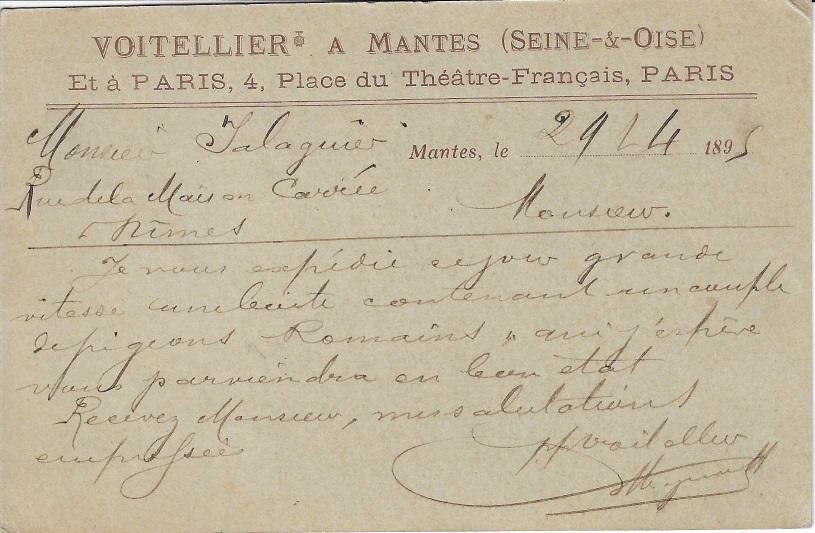 VOITELLIER* A MANTES (SEINE-&-OISE)
Et à PARIS, 4, Place du Théâtre-Français, PARIS
Monsieur Jalaguier
Mantes, le 29/4 1895
Rue de la Maison Carrée
Nîmes
Monsieur.
Je vous expédie ce jour grande
vitesse une boite contenant un couple
de pigeons Romains, qui j'espère
vous parviendra en bon état
Recevez Monsieur, mes salutations
empressées
pp Voitellier